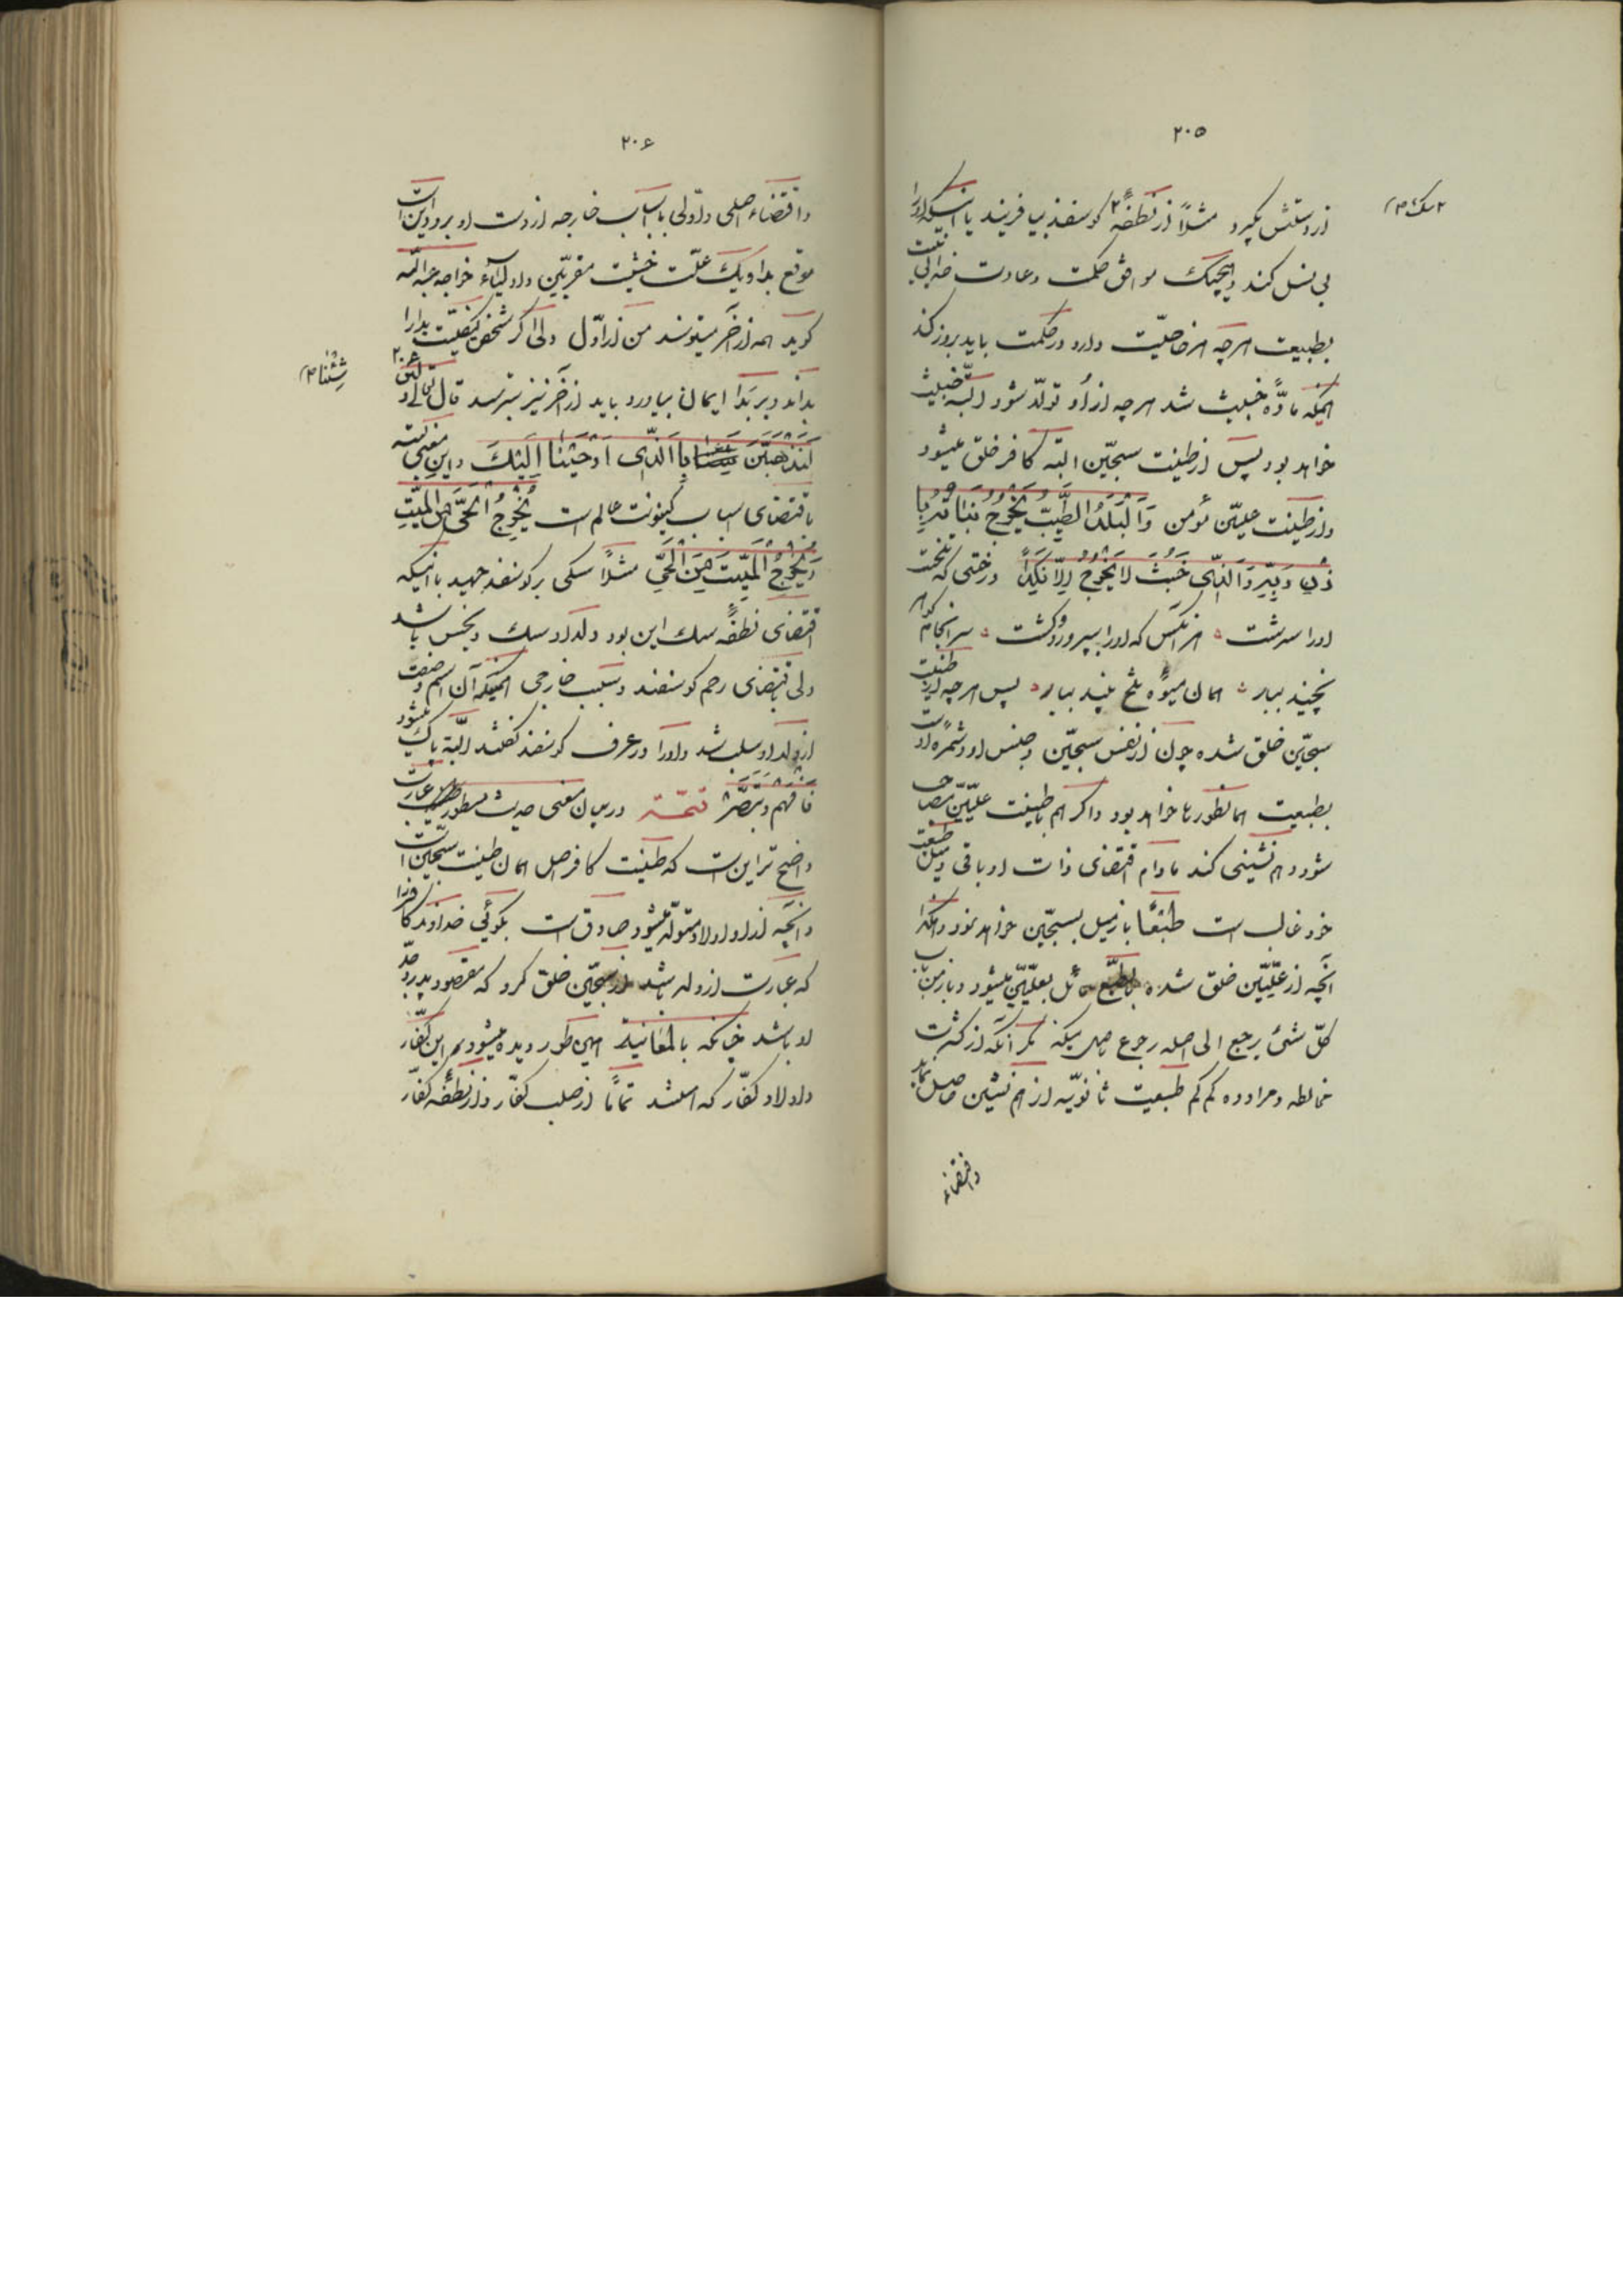 ۲۰۵
از دستش بگیرد مثلاً از نطفهٔ ۲ گوسفند بیافریند یا اینکه او را
۲ سگ ۲
بی نسل کند و هیچیک موافق حکمت و عادت خدائی نیست
بطبیعت هرچه هر خاصیّت دارد در حکمت باید بروز کند
همینکه مادّه خبیث شد هرچه از او تولّد شود البتّه خبیث
خواهد بود پس از طینت سجّین البتّه کافر خلق میشود
و از طینت علیّین مؤمن وَالْبَلَدُ الطَّیِّبُ یَخْرُجُ نَبَاتُهُ بِاِ
ذْنِ رَبِّهِ وَالَّذِی خَبُثَ لَا یَخْرُجُ اِلَّا نَکِدًا درختی که تلخست
او را سرشت هر آنکس که او را بپرورد و کشت سرانجام
نچیند ببار همان میوهٔ تلخ پیند ببار پس هرچه از طینت
سجّین خلق شده چون از نفس سجّین و جنس او و ثمرهٔ اوست
بطبیعت همانطورها خواهد بود و اگر هم با طینت علیّین مصاحب
شود و همنشینی کند مادام اقتضای ذات او باقی و میل طبیعت
خود غالب است طبعًا باز میل بسجّین خواهد نمود و هکذا
آنچه از علّیّین خلق شده بالطّبع مائل بعلّیّین میشود و باز من باب
کلّ شیئ یرجع الی اصله رجوع باصل میکند مگر آنکه از کثرت
مخالطه و مراوده کم کم طبیعت ثانویّه از هم نشین حاصل نماید
و اقتضاء
۲۰۶
و اقتضاء اصلی و اوّلی باسباب خارجه از دست او برود این است
موقع بدا و یک علّت خشیت مقربّین و اولیآء خواجه عبدالله
گوید همه از آخر میترسند من از اوّل ولی اگر شخص کیفیّت بدا را
بداند و بر بَدا ایمان بیاورد باید از آخر نیز بترسد قال تعالی و لئن ۲۰۶
شِئْنا ۲
لَنَذْهَبَنَّ بِالَّذِی اَوْحَیْنَا اِلَیْكَ و این معنی البته
باقتضای اسباب کینونت عالم است یُخْرِجُ الْحَیَّ مِنَ الْمَیِّتِ
وَ یُخْرِجُ الْمَیِّتَ مِنَ الْحَیِّ مثلاً سگی بر گوسفند جهید با اینکه
اقتضای نطفهٔ سگ این بود ولد او سگ و نجس باشد
ولی باقتضای رحم گوسفند و سبب خارجی همینکه آن اسم و صفت
از ولد او سلب شد و او را در عرف گوسفند گفتند البتّه پاک میشود
فَافْهَم وَ تَبَصَّرْ تتمّه در بیان معنی حدیث مسطور عبارت
واضح تر این است که طینت کافر اصل همان طینت سجّین است
و آنچه از او اولاد متولّد میشود صادق است بگوئی خداوند کافر را
که عبارت از ولد باشد از سجّین خلق کرد که مقصود پدر و جدّ
او باشد چنانکه بالمعانیة همین طور دیده میشود همه این کفّار
و اولاد کفّار که هستند تمامًا از صلب کفّار و از نطفهٔ کفّار